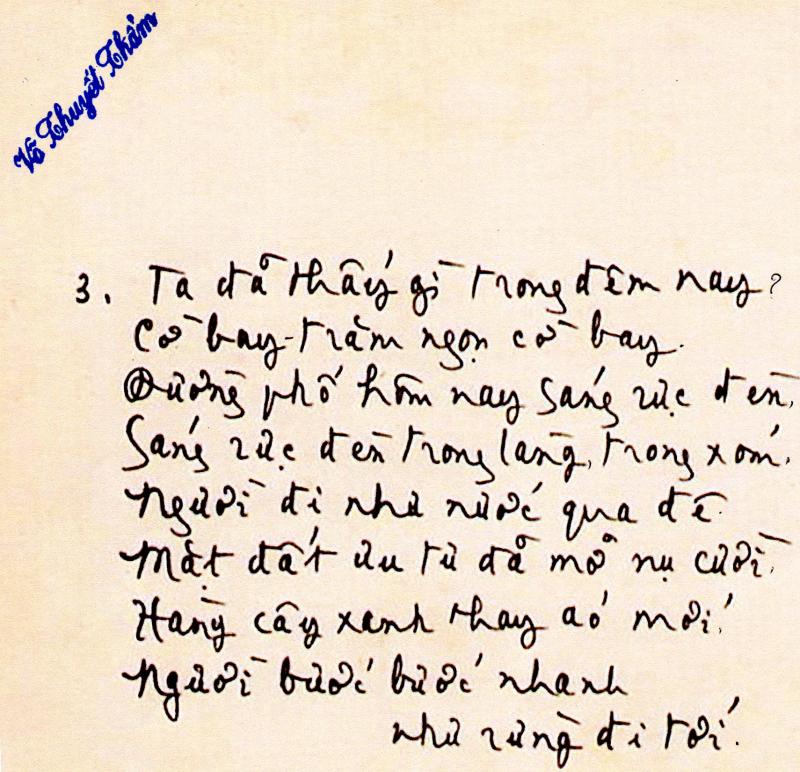 Võ Thuyết Thảm
3. Ta đã thấy gì trong đêm nay?
Cờ bay - trăm ngọn cờ bay.
Đường phố hôm nay sáng rực đèn,
Sáng rực đèn trong làng, trong xóm.
Người đi như nước qua đê
Mặt đất ưu tư đã mở nụ cười.
Hàng cây xanh thay áo mới.
Người bước bước nhanh
như rừng đi tới.